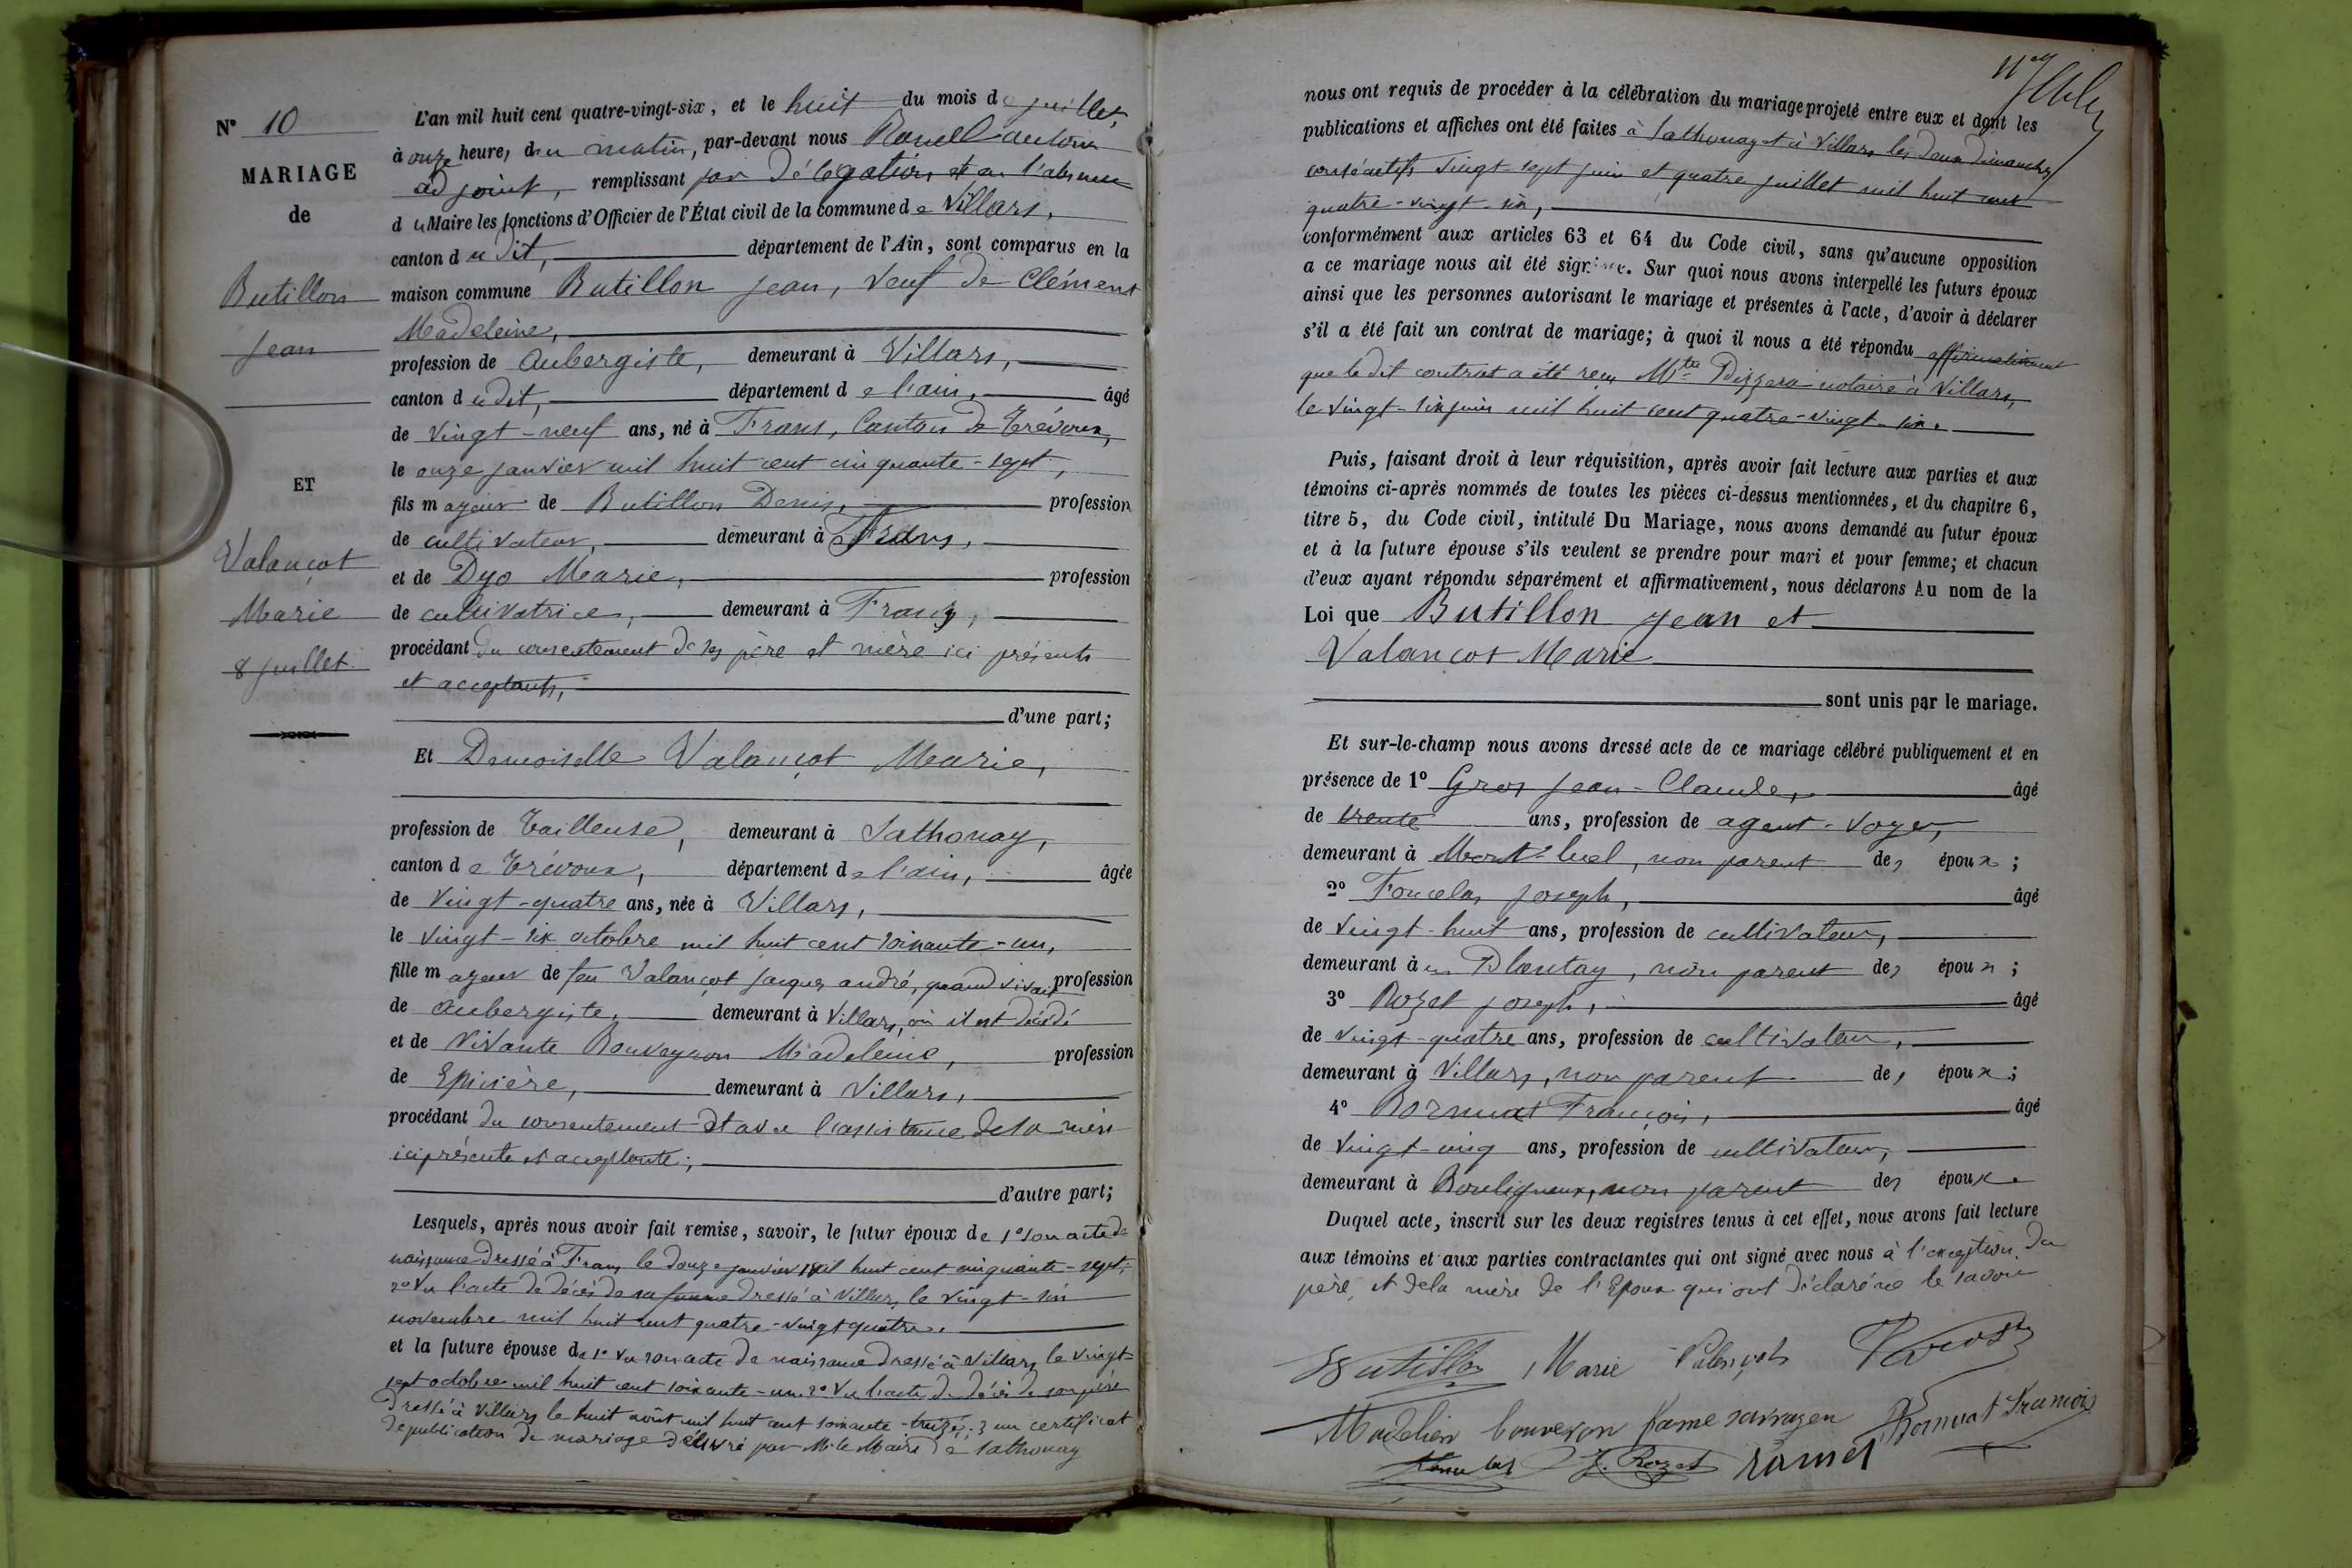 N° 10
MARIAGE
de
Butillon
Jean
ET
Valançot
Marie
8 juillet
L'an mil huit cent quatre-vingt-six, et le huit du mois de juillet,
à onze heures du matin, par-devant nous Ramel antoine
adjoint, remplissant par délégation et en l'absence
du Maire les fonctions d'Officier de l'État civil de la commune de Villars,
canton dudit, département de l'Ain, sont comparus en la
maison commune Butillon Jean, veuf de Clément
Madeleine,
profession de aubergiste, demeurant à Villars,
canton dudit, département de l'ain, âgé
de vingt-neuf ans, né à Frans, Canton de Trévoux,
le onze janvier mil huit cent cinquante-sept,
fils majeur de Butillon Denis, profession
de cultivateur, demeurant à Frans,
et de Dyo Marie, profession
de cultivatrice, demeurant à Frans,
procédant du consentement de ses père et mère ici présents
et acceptants,
d'une part;
Et Demoiselle Valançot Marie,
profession de Tailleuse, demeurant à Sathonay,
canton de Trévoux, département de l'ain, âgée
de vingt-quatre ans, née à Villars,
le vingt-six octobre mil huit cent soixante-un,
fille majeur de feu Valançot Jacques andré, quand vivait profession
de aubergiste, demeurant à Villars, où il est décédé
et de vivante Bouveyron Madeleine, profession
de Epicière, demeurant à Villars,
procédant du consentement et avec l'assistance de sa mère
ici présente et acceptante;
d'autre part;
Lesquels, après nous avoir fait remise, savoir, le futur époux de 1° son acte de
naissance dressé à Frans le douze janvier mil huit cent cinquante-sept;
2° Vu l'acte de décès de sa femme dressé à Villars, le vingt-six
novembre mil huit cent quatre-vingt quatre.
et la future épouse de 1° vu son acte de naissance dressé à Villars le vingt-
sept octobre mil huit cent soixante-un. 2° Vu l'acte de décès de son père
dressé à Villars le huit août mil huit cent soixante-treize; 3 un certificat
de publication de mariage délivré par M. le Maire de Sathonay
nous ont requis de procéder à la célébration du mariage projeté entre eux et dont les
publications et affiches ont été faites à Sathonay et à Villars les deux dimanches
consécutifs vingt-sept juin et quatre juillet mil huit cent
quatre-vingt-six,
conformément aux articles 63 et 64 du Code civil, sans qu'aucune opposition
a ce mariage nous ait été signifiée. Sur quoi nous avons interpellé les futurs époux
ainsi que les personnes autorisant le mariage et présentes à l'acte, d'avoir à déclarer
s'il a été fait un contrat de mariage; à quoi il nous a été répondu affirmativement
que le dit contrat a été reçu Mtre notaire à Villars,
le vingt-six juin mil huit cent quatre-vingt-six.
Puis, faisant droit à leur réquisition, après avoir fait lecture aux parties et aux
témoins ci-après nommés de toutes les pièces ci-dessus mentionnées, et du chapitre 6,
titre 5, du Code civil, intitulé Du Mariage, nous avons demandé au futur époux
et à la future épouse s'ils veulent se prendre pour mari et pour femme; et chacun
d'eux ayant répondu séparément et affirmativement, nous déclarons Au nom de la
Loi que Butillon Jean et
Valancot Marie
sont unis par le mariage.
Et sur-le-champ nous avons dressé acte de ce mariage célébré publiquement et en
présence de 1° Gros Jean-Claude, âgé
de trente ans, profession de agent-voyer,
demeurant à Mont-luel, non parent des époux;
2° Foncelas Joseph, âgé
de vingt-huit ans, profession de cultivateur,
demeurant à Plantay, non parent des époux;
3° Rozet Joseph, âgé
de vingt-quatre ans, profession de cultivateur,
demeurant à Villars, non parent des époux;
4° Bornuat François, âgé
de vingt-cinq ans, profession de cultivateur,
demeurant à Bouligneux, non parent des époux.
Duquel acte, inscrit sur les deux registres tenus à cet effet, nous avons fait lecture
aux témoins et aux parties contractantes qui ont signé avec nous à l'exception du
père, et de la mère de l'Epoux qui ont déclaré ne le savoir
Butillon Marie Valençot
Madelien bouveron
Bornuat Francois
J. Rozet ramel